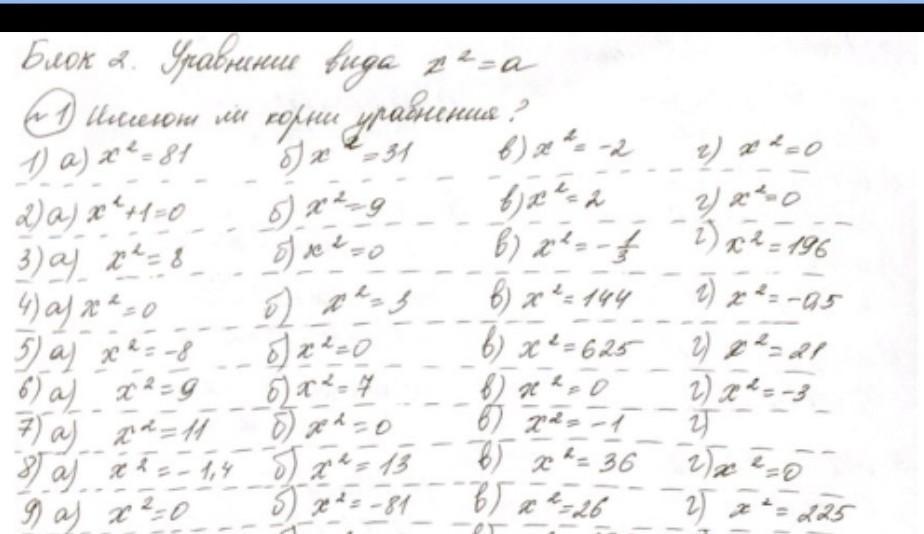 Блок 2. Уравнение вида x²=a
№1 Имеют ли корни уравнения?
1) а) x²=81 б) x²=31 в) x²=-2 г) x²=0
2) а) x²+1=0 б) x²=9 в) x²=2 г) x²=0
3) а) x²=8 б) x²=0 в) x²=-1/3 г) x²=196
4) а) x²=0 б) x²=3 в) x²=144 г) x²=-0,5
5) а) x²=-8 б) x²=0 в) x²=625 г) x²=21
6) а) x²=9 б) x²=7 в) x²=0 г) x²=-3
7) а) x²=11 б) x²=0 в) x²=-1 г)
8) а) x²=-1,4 б) x²=13 в) x²=36 г) x²=0
9) а) x²=0 б) x²=-81 в) x²=26 г) x²=225